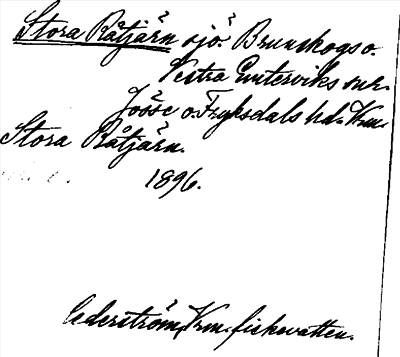 Stora Råtjärn sjö. Brunskogs o.
Västra Emterviks snr.
Jösse o. Fryksdals hd. Vrm.
Stora Råtjärn.
1896.
Cederström, Vrm. fiskevatten.